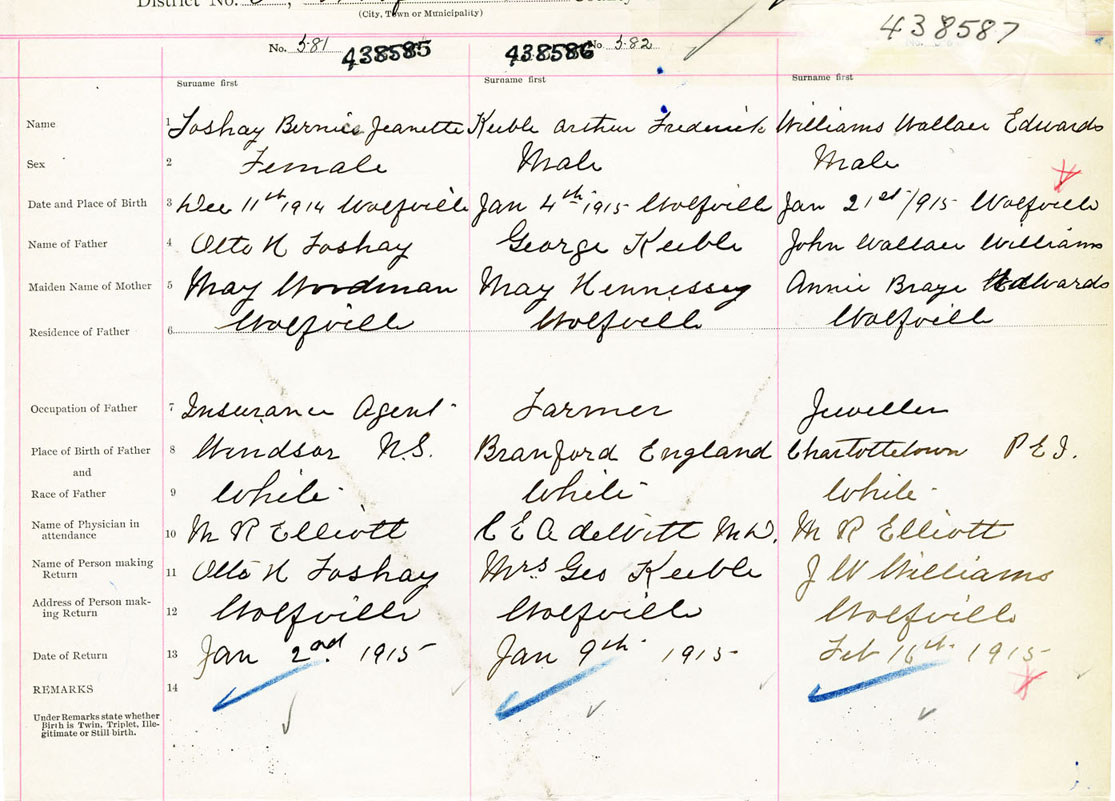 District No.
County
(City, Town or Municipality)
No. 581 438585 438586 No. 582 438587
Surname first Surname first Surname first
Name 1 Foshay Bernice Jeanette Keeble Arthur Frederick Williams Wallace Edwards
Sex 2 Female Male Male
Date and Place of Birth 3 Dec 11th 1914 Wolfville Jan 4th 1915 Wolfville Jan 21st/915 Wolfville
Name of Father 4 Otto N Foshay George Keeble John Wallace Williams
Maiden Name of Mother 5 May Woodman May Hennessey Annie Edwards
Residence of Father 6 Wolfville Wolfville Wolfville
Occupation of Father 7 Insurance Agent Farmer Jeweller
Place of Birth of Father 8 Windsor N.S. Branford England Charlottetown P E I.
and
Race of Father 9 White White White
Name of Physician in
attendance 10 M R Elliott C E A deWitt M.D. M R Elliott
Name of Person making
Return 11 Otto N Foshay Mrs Geo Keeble J W Williams
Address of Person mak-
ing Return 12 Wolfville Wolfville Wolfville
Date of Return 13 Jan 2nd 1915 Jan 9th 1915 Feb 1915
REMARKS 14
Under Remarks state whether
Birth is Twin, Triplet, Ille-
gitimate or Still birth.